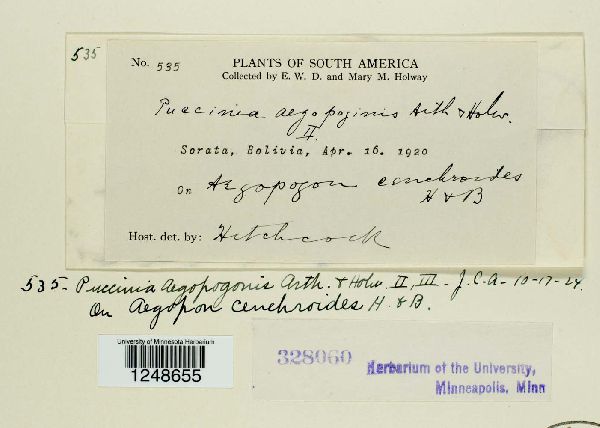 535
No. 535
PLANTS OF SOUTH AMERICA
Collected by E. W. D. and Mary M. Holway
Puccinia aegopoginis Arth & Holw.
II
Sorata, Bolivia, Apr. 16. 1920
On Aegopogon cenchroides
H & B
Host. det. by: Hitchcock
535- Puccinia Aegopogonis Arth. & Holw II, III - J.C.A- 10-17-24.
On Aegopon cenchroides H. & B.
University of Minnesota Herbarium
1248655
328060
Herbarium of the University,
Minneapolis, Minn